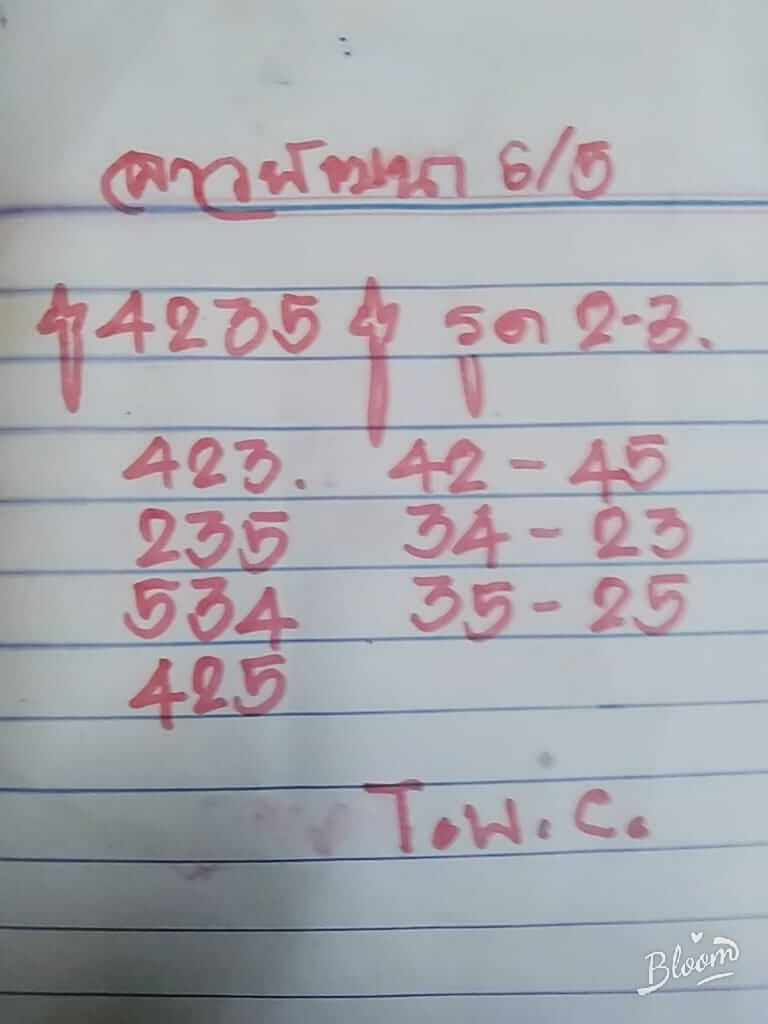 ลาวพัฒนา 6/5
4235 รูด 2-3.
423. 42-45
235 34-23
534 35-25
425
T.W.C.
Bloom